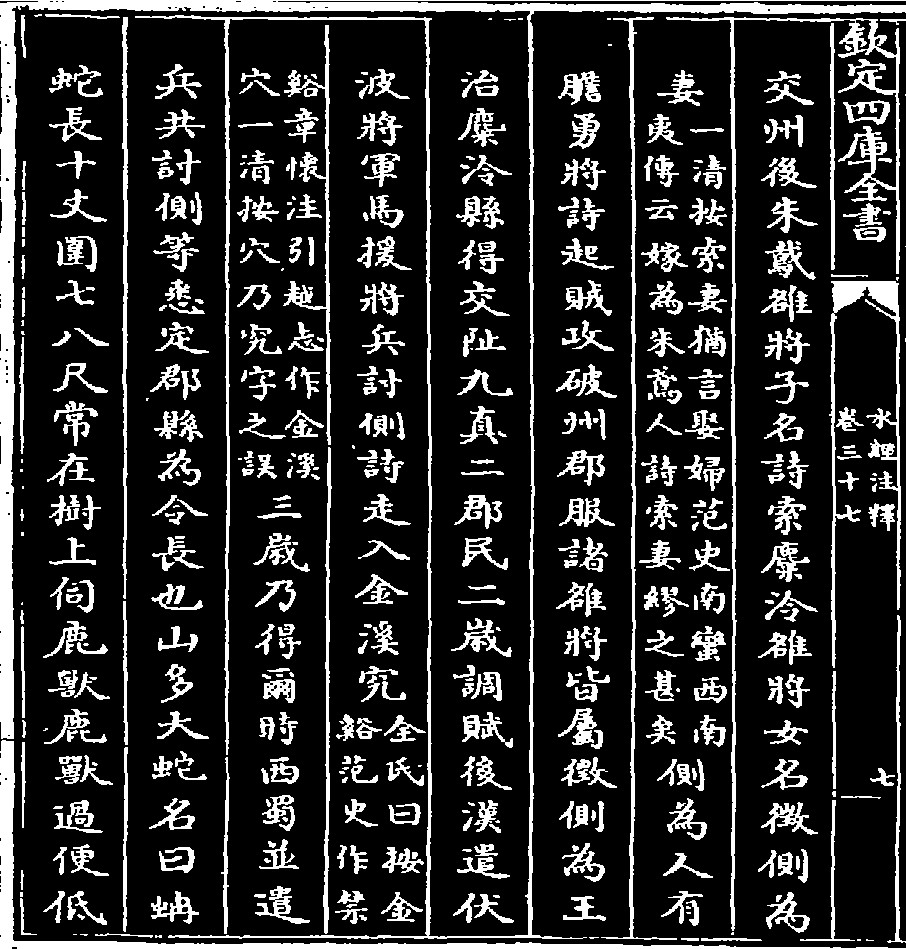 欽定四庫全書
水經注釋
卷三十七
七
交州後朱䳒雒將子名詩索麊泠雒將女名徵側為
妻一清按索妻猶言娶婦范史南蠻西南
夷傳云嫁為朱鳶人詩索妻繆之甚矣側為人有
膽勇將詩起賊攻破州郡服諸雒將皆屬徵側為王
治麊泠縣得交阯九真二郡民二歲調賦後漢遣伏
波將軍馬援將兵討側詩走入金溪究全氏曰按金
谿范史作禁
谿章懷注引越志作金溪
穴一清按穴乃究字之誤三歲乃得爾時西蜀並遣
兵共討側等悉定郡縣為令長也山多大蛇名曰蚺
蛇長十丈圍七八尺常在樹上伺鹿獸鹿獸過便低